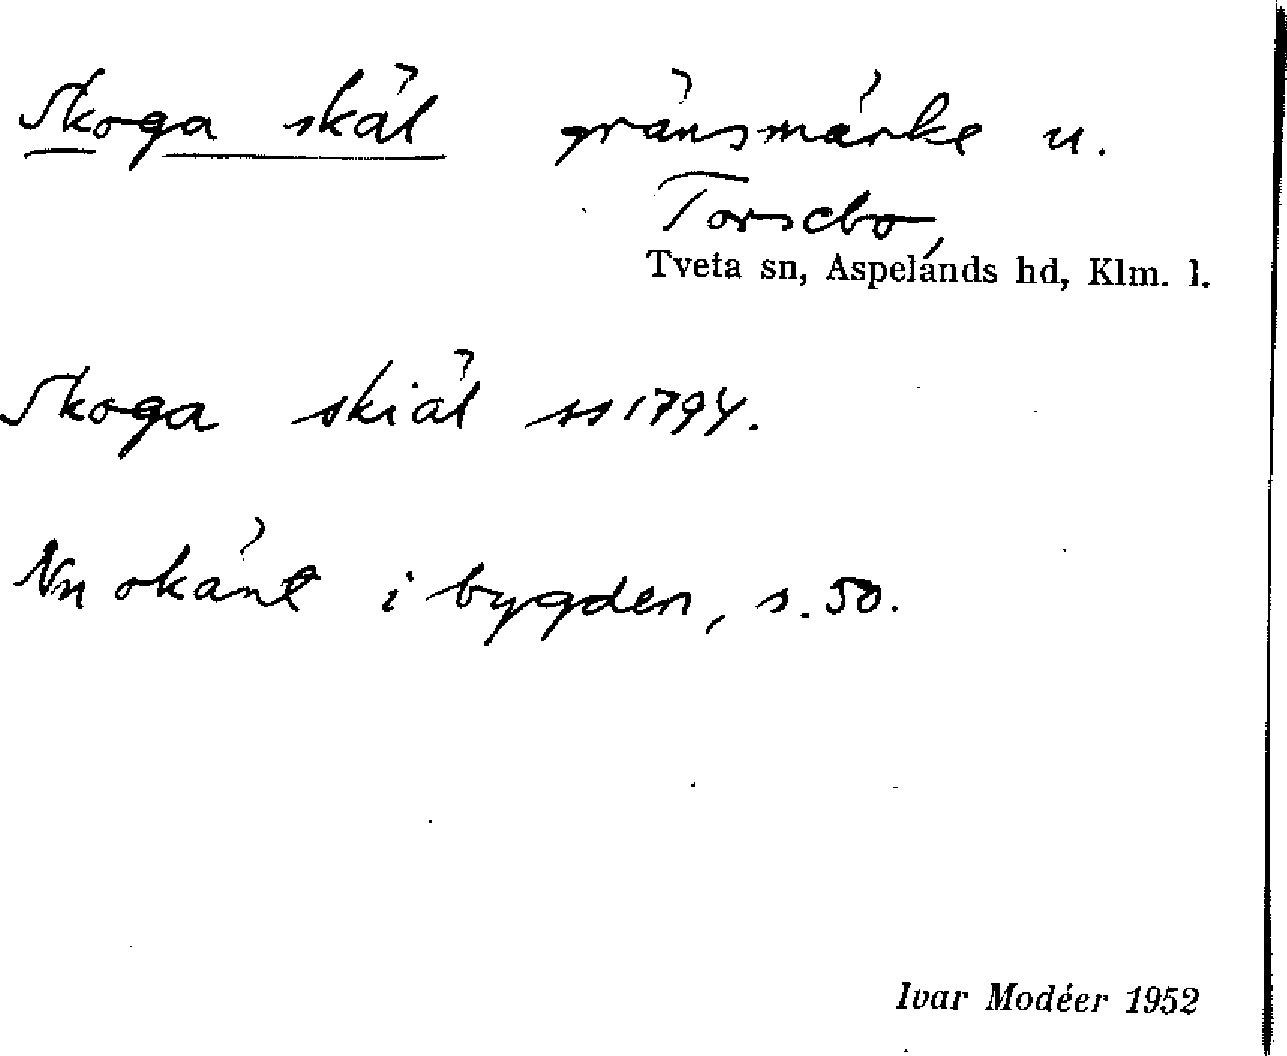 Skoga skäl gränsmärke u.
Torsebo,
Tveta sn, Aspelands hd, Klm. l.
Skoga skiäl ss 1794.
Nn okänt i bygden, s. 50.
Ivar Modéer 1952